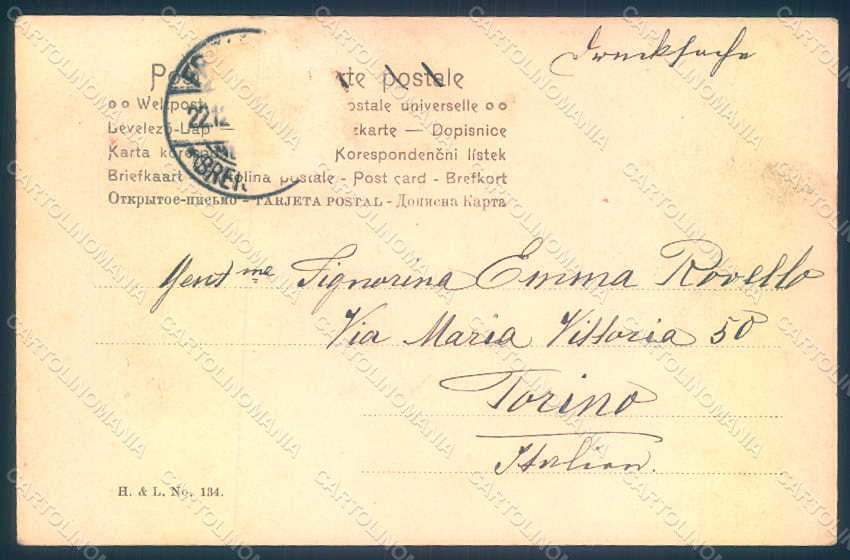 Drucksache
Po rte postale
Weltpost ostale universelle
Levelező-Lap — zkarte — Dopisnice
Karta koresp Korespondenční lístek
Briefkaart - olina postale - Post card - Brefkort
Открытое-письмо - TARJETA POSTAL - Дописна Карта
22.12
Gent me Signorina Emma Rovello
Via Maria Vittoria 50
Torino
Italien.
H. & L. No. 134.
CARTOLINOMANIA